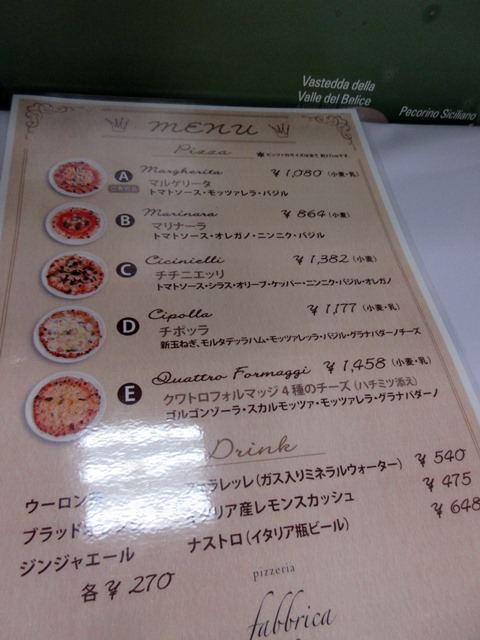 Vastedda della
Valle del Belice
Pecorino Siciliano
MENU
Pizza
A Margherita ¥1,080 (小麦・乳)
マルゲリータ
トマトソース・モッツァレラ・バジル
B Marinara ¥864 (小麦)
マリナーラ
トマトソース・オレガノ・ニンニク・バジル
C Cicinielli ¥1,382 (小麦)
チチニエッリ
トマトソース・シラス・オリーブ・ケッパー・ニンニク・バジル・オレガノ
D Cipolla ¥1,177 (小麦・乳)
チポッラ
新玉ねぎ、モルタデッラハム・モッツァレッラ・バジル・グラナパダーノチーズ
E Quattro Formaggi ¥1,458 (小麦・乳)
クワトロフォルマッジ4種のチーズ(ハチミツ添え)
ゴルゴンゾーラ・スカルモッツァ・モッツァレラ・グラナパダーノ
Drink
ウーロン
ラレッレ(ガス入りミネラルウォーター) ¥540
ブラッド
リア産レモンスカッシュ ¥475
ジンジャエール
ナストロ(イタリア瓶ビール) ¥648
各¥270
pizzeria
fabbrica